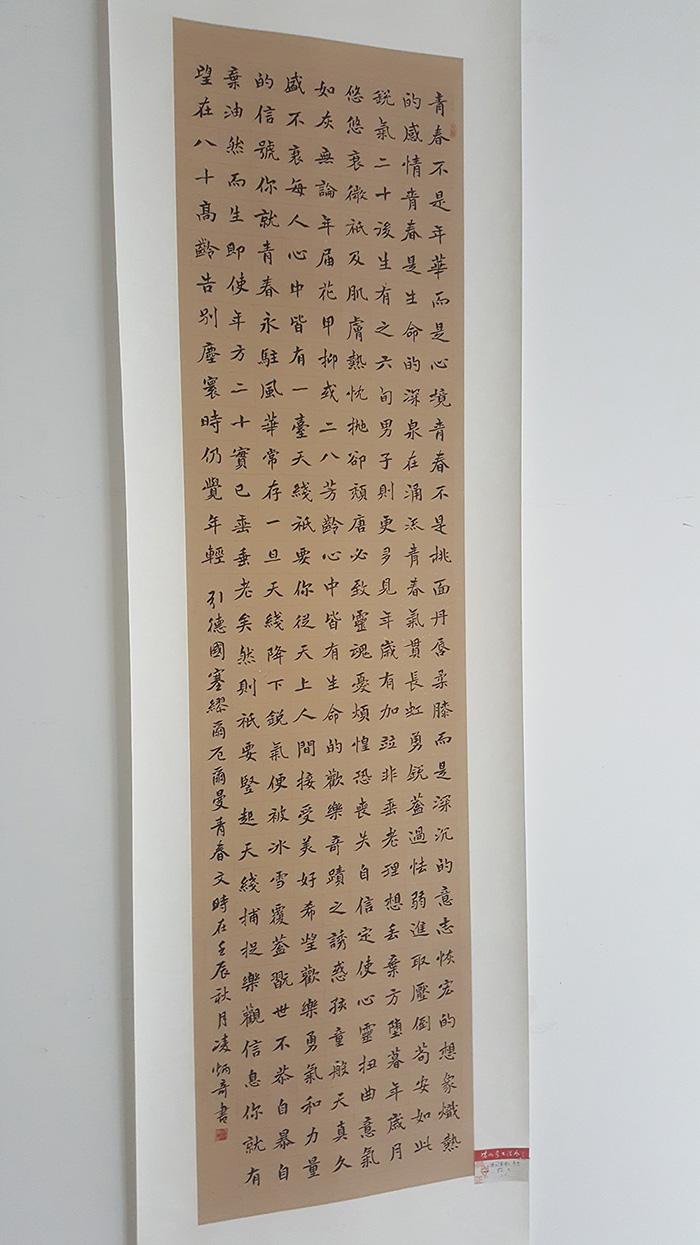 青春不是年華而是心境青春不是桃面丹唇柔膝而是深沉的意志恢宏的想象熾熱
的感情青春是生命的深泉在涌流青春氣貫長虹勇銳蓋過怯弱進取壓倒苟安如此
銳氣二十後生有之六旬男子則更多見年歲有加並非垂老理想丟棄方墮暮年歲月
悠悠衰微祇及肌膚熱忱拋卻頹唐必致靈魂憂煩惶恐喪失自信定使心靈扭曲意氣
如灰無論年屆花甲抑或二八芳齡心中皆有生命的歡樂奇蹟之誘惑孩童般天真久
盛不衰每人心中皆有一臺天綫祇要你從天上人間接受美好希望歡樂勇氣和力量
的信號你就青春永駐風華常存一旦天綫降下銳氣便被冰雪覆蓋翫世不恭自暴自
棄油然而生即使年方二十實已垂垂老矣然則祇要豎起天綫捕捉樂觀信息你就有
望在八十高齡告別塵寰時仍覺年輕 引德國塞繆爾厄爾曼青春文時在壬辰秋月凌炳奇書